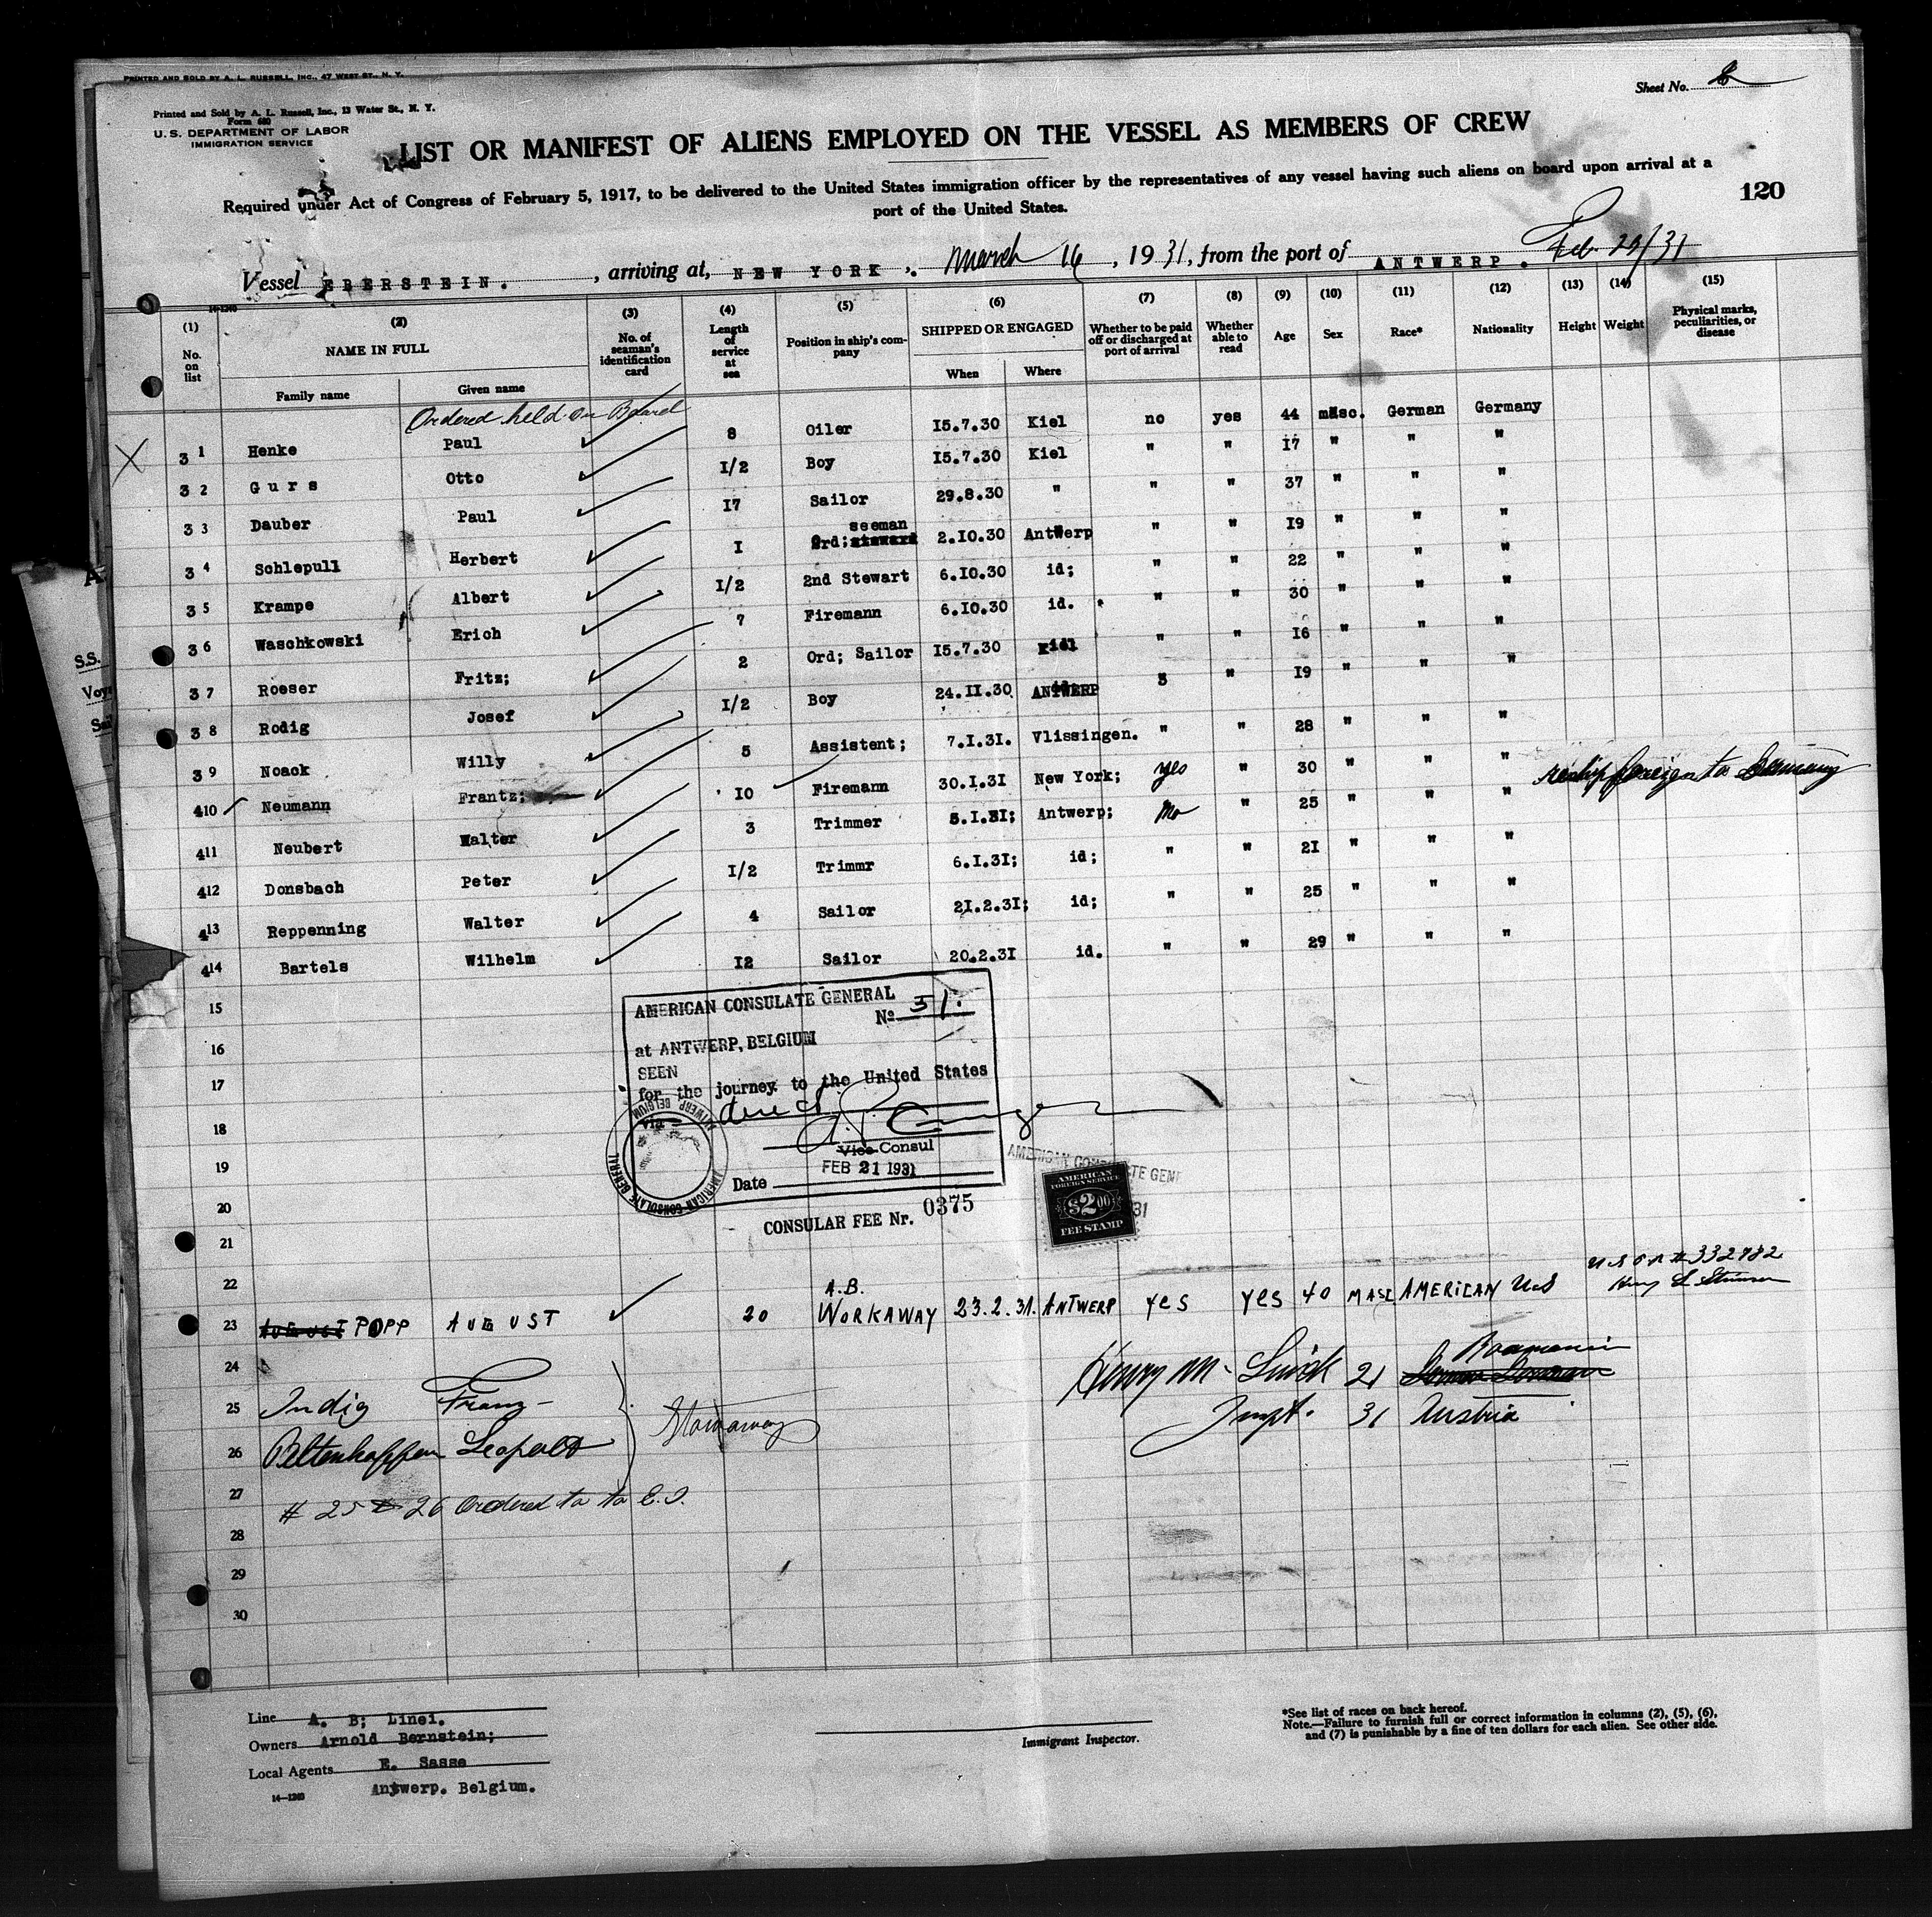 PRINTED AND SOLD BY A. L. RUSSELL, INC., 47 WEST ST., N. Y.
Sheet No.
Printed and Sold by A. L. Russell, Inc., 13 Water St., N. Y.
Form 680
U. S. DEPARTMENT OF LABOR
IMMIGRATION SERVICE
LIST OR MANIFEST OF ALIENS EMPLOYED ON THE VESSEL AS MEMBERS OF CREW
Required under Act of Congress of February 5, 1917, to be delivered to the United States immigration officer by the representatives of any vessel having such aliens on board upon arrival at a
port of the United States.
120
Vessel EBERSTEIN. , arriving at, NEW YORK , March 16 , 1931, from the port of ANTWERP . Feb. /31
14-1240
(1) (2) (3) (4) (5) (6) (7) (8) (9) (10) (11) (12) (13) (14) (15)
No. on list NAME IN FULL No. of seaman's identification card Length of service at sea Position in ship's company SHIPPED OR ENGAGED Whether to be paid off or discharged at port of arrival Whether able to read Age Sex Race* Nationality Height Weight Physical marks, peculiarities, or disease
Family name Given name When Where
Ordered held on Board
X 3 1 Henke Paul 8 Oiler 15.7.30 Kiel no yes 44 masc. German Germany
3 2 Gurs Otto 1/2 Boy 15.7.30 Kiel " " 17 " " "
3 3 Dauber Paul 17 Sailor 29.8.30 " " " 37 " " "
seeman
3 4 Schlepull Herbert 1 Ord; 2.10.30 Antwerp " " 19 " " "
3 5 Krampe Albert 1/2 2nd Stewart 6.10.30 id; " " 22 " " "
3 6 Waschkowski Erich 7 Firemann 6.10.30 id. " " 30 " " "
3 7 Roeser Fritz; 2 Ord; Sailor 15.7.30 Kiel " " 16 " " "
3 8 Rodig Josef 1/2 Boy 24.11.30. ANTWERP " " 19 " " "
3 9 Noack Willy 5 Assistent; 7.1.31. Vlissingen. " " 28 " " "
4 10 Neumann Frantz; 10 Firemann 30.1.31 New York; yes " 30 " " " reship foreign to Germany
4 11 Neubert Walter 3 Trimmer 5.1.31; Antwerp; No " 25 " " "
4 12 Donsbach Peter 1/2 Trimmr 6.1.31; id; " " 21 " " "
4 13 Reppenning Walter 4 Sailor 21.2.31; id; " " 25 " " "
4 14 Bartels Wilhelm 12 Sailor 20.2.31 id. " " 29 " " "
15
16
17
18
19
20
21
22
AMERICAN CONSULATE GENERAL
No. 31.
at ANTWERP, BELGIUM
SEEN
for the journey to the United States
via direct
Vice Consul
FEB 21 1931
Date
AMERICAN CONSULATE GENERAL
ANTWERP BELGIUM
CONSULAR FEE Nr. 0375
AMERICAN CONSULATE GENE
31
AMERICAN
FOREIGN SERVICE
$2.00
FEE STAMP
332782
A.B.
23 AUGUST POPP AUGUST 20 WORKAWAY 23.2.31. ANTWERP yes yes 40 MASC. AMERICAN U.S
24 Henry M. 21 Roumania
25 Indig Franz Stowaway Inspt. 31 Austria
26 Leopold
27 # 25 & 26 Ordered to to E.I.
28
29
30
Line A. B; Linei.
Owners Arnold Bernstein;
Local Agents E. Sasse
Antwerp. Belgium.
14—1240
Immigrant Inspector.
*See list of races on back hereof.
Note.—Failure to furnish full or correct information in columns (2), (5), (6),
and (7) is punishable by a fine of ten dollars for each alien. See other side.
S.S.
Voy
Sail